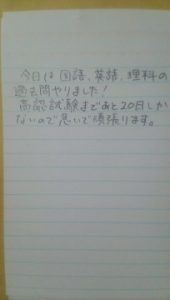 今日は国語、英語、理科の
過去問やりました!
高認試験まであと20日しか
ないので急いで頑張ります。